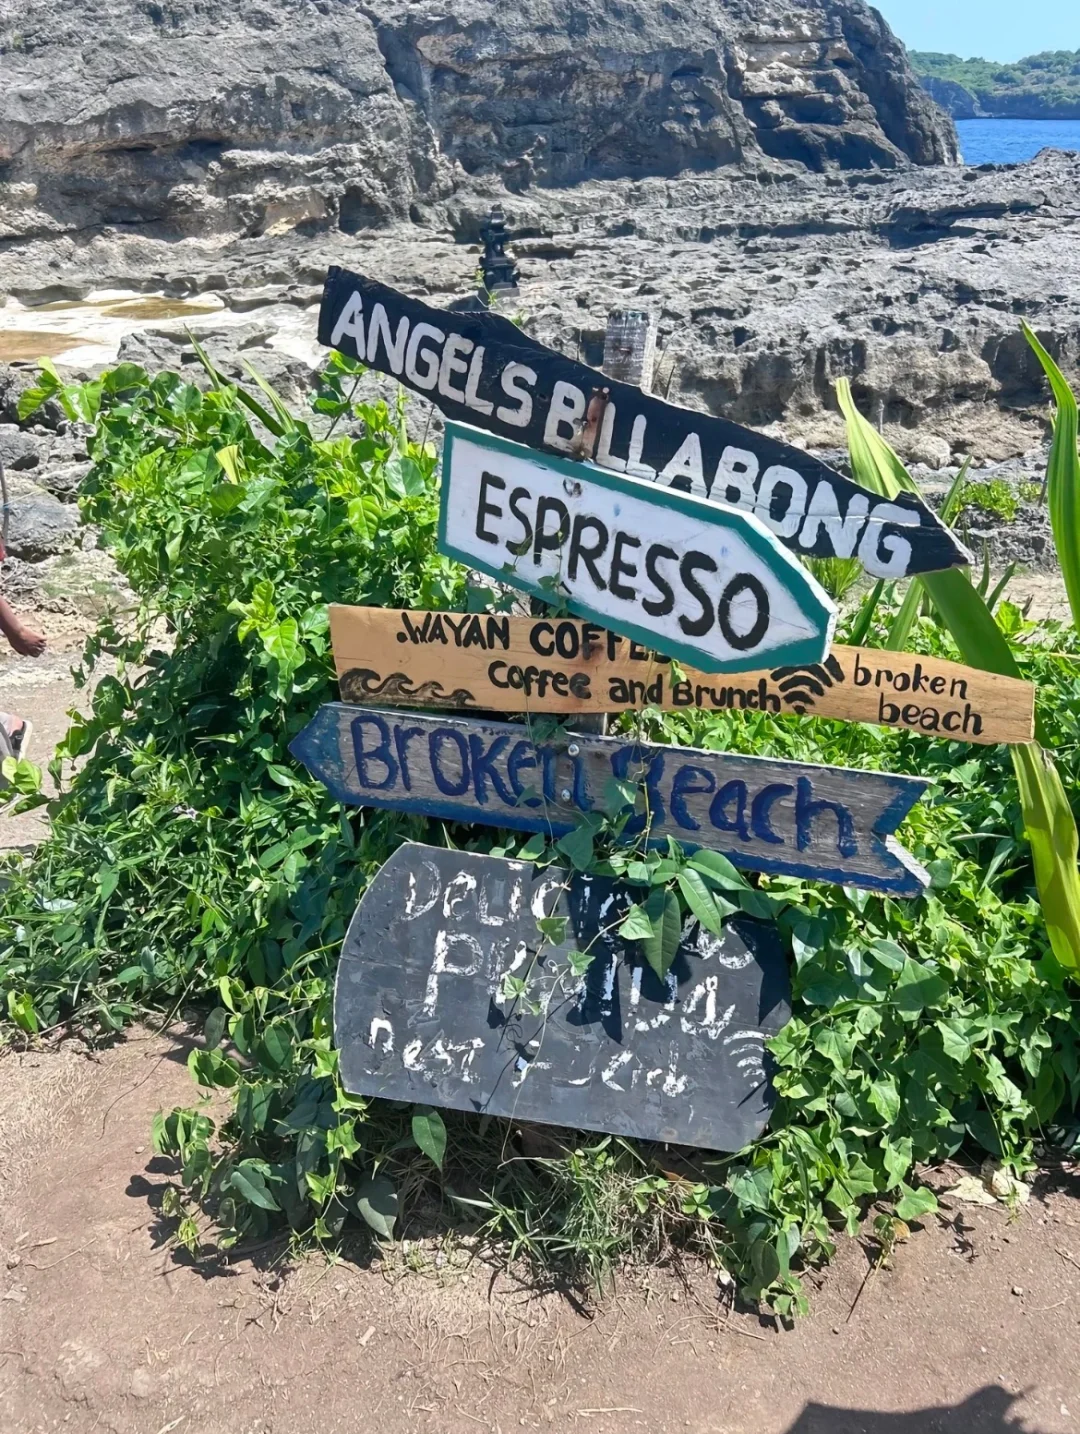 ANGELS BILLABONG
ESPRESSO
.WAYAN COFFEE
Coffee and Brunch
broken
beach
Broken Beach
Delicious
nest